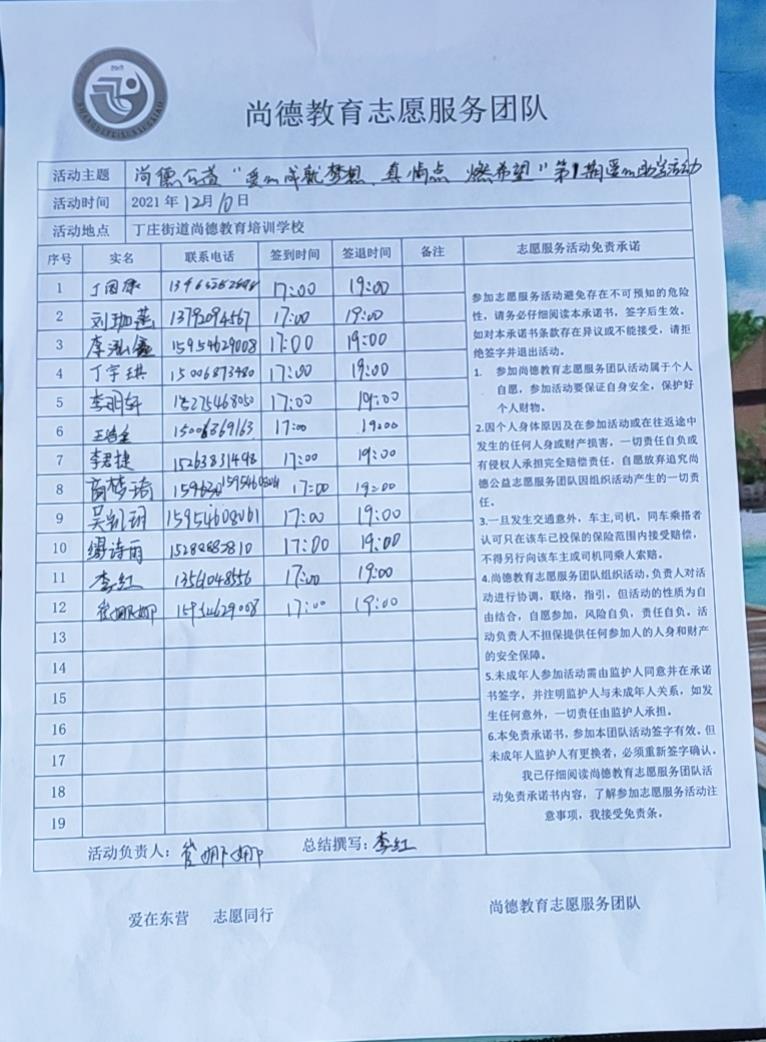 尚德教育志愿服务团队
活动主题 尚德公益“爱心成就梦想、真情点燃希望”第1期爱心助学活动
活动时间 2021年12月10日
活动地点 丁庄街道尚德教育培训学校
序号 实名 联系电话 签到时间 签退时间 备注
1 17:00 19:00
2 13792094567 17:00 19:00
3 15954629008 17:00 19:00
4 丁宇琪 15006873480 17:00 19:00
5 李明轩 17:00 19:00
6 15006869163 17:00 19:00
7 李君捷 15263831498 17:00 19:00
8 17:00 19:00
9 吴凯玥 15954608061 17:00 19:00
10 17:00 19:00
11 李红 17:00 19:00
12 崔娜娜 17:00 19:00
13
14
15
16
17
18
19
志愿服务活动免责承诺
参加志愿服务活动避免存在不可预知的危险
性,请务必仔细阅读本承诺书,签字后生效。
如对本承诺书条款存在异议或不能接受,请拒
绝签字并退出活动。
1. 参加尚德教育志愿服务团队活动属于个人
自愿,参加活动要保证自身安全,保护好
个人财物。
2.因个人身体原因及在参加活动或在往返途中
发生的任何人身或财产损害,一切责任自负或
有侵权人承担完全赔偿责任,自愿放弃追究尚
德公益志愿服务团队因组织活动产生的一切责
任。
3.一旦发生交通意外,车主,司机,同车乘搭者
认可只在该车已投保的保险范围内接受赔偿,
不得另行向该车主或司机同乘人索赔。
4.尚德教育志愿服务团队组织活动,负责人对活
动进行协调,联络,指引,但活动的性质为自
由结合,自愿参加,风险自负,责任自负。活
动负责人不担保提供任何参加人的人身和财产
的安全保障。
5.未成年人参加活动需由监护人同意并在承诺
书签字,并注明监护人与未成年人关系,如发
生任何意外,一切责任由监护人承担。
6.本免责承诺书,参加本团队活动签字有效。但
未成年人监护人有更换者,必须重新签字确认。
我已仔细阅读尚德教育志愿服务团队活
动免责承诺书内容,了解参加志愿服务活动注
意事项,我接受免责条。
活动负责人:崔娜娜 总结撰写:李红
爱在东营 志愿同行 尚德教育志愿服务团队